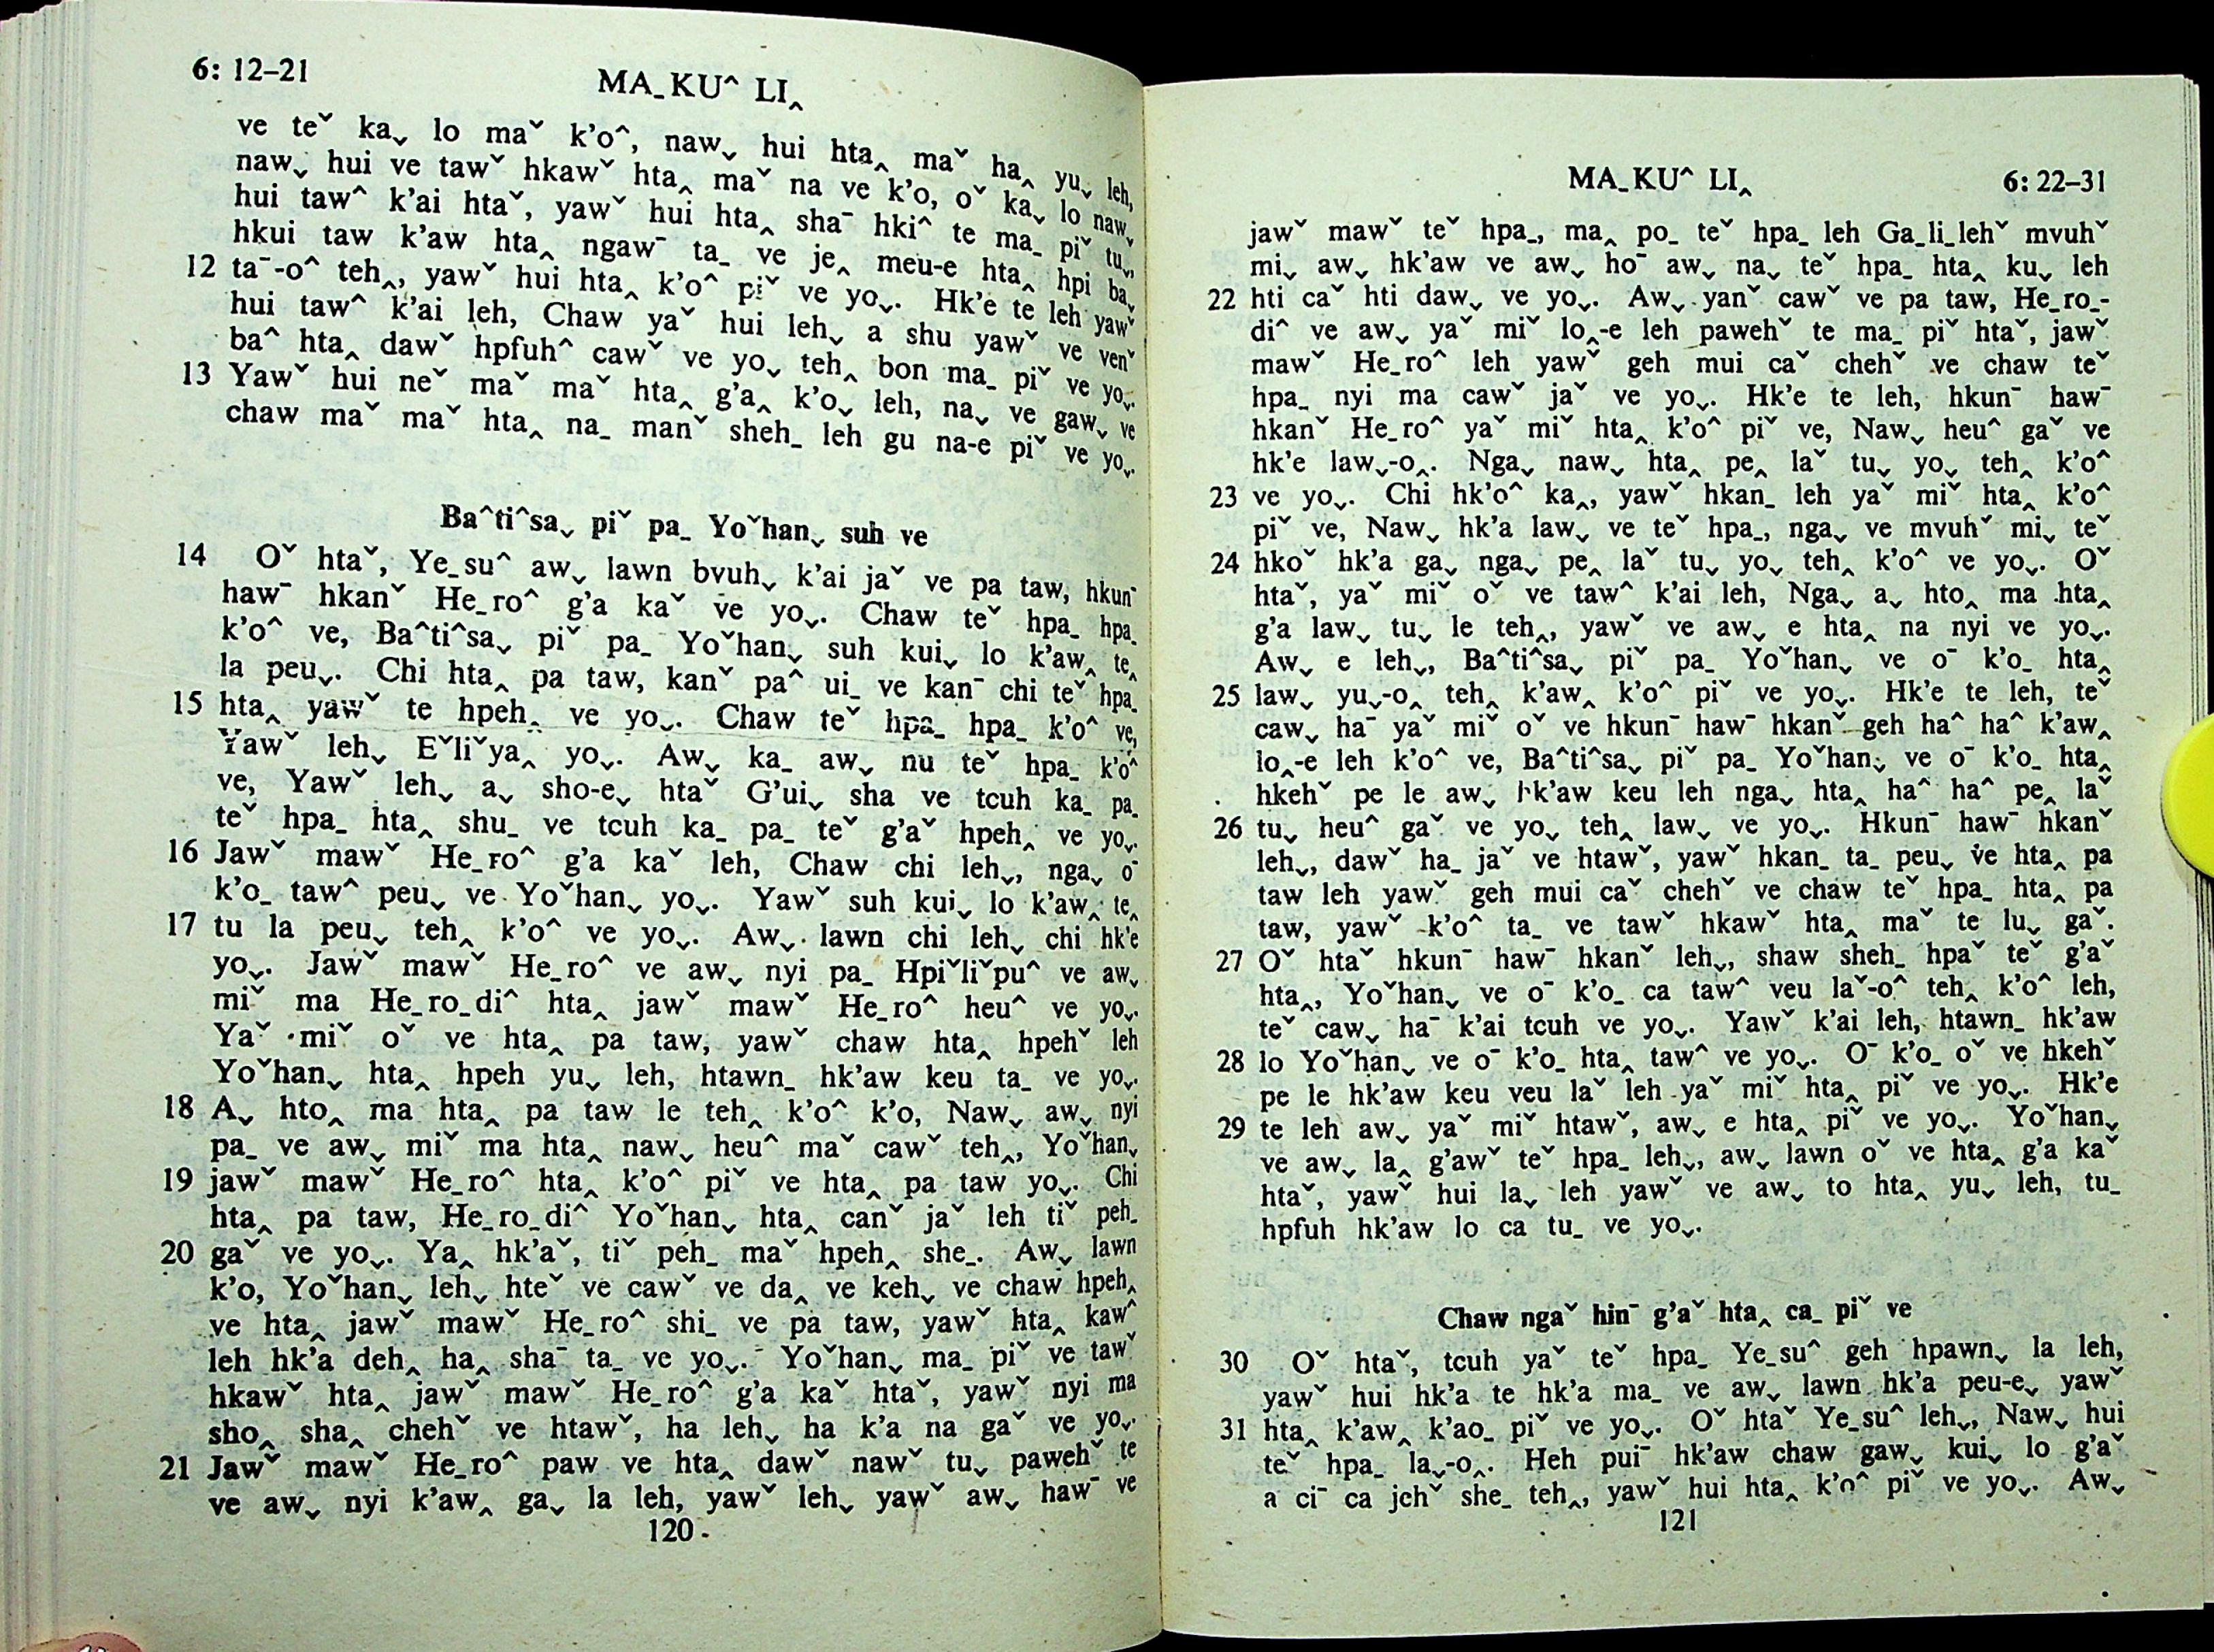 6: 12–21
MA˗KUˆ LI‸
ve teˇ kaˬ lo maˇ k’oˆ, nawˬ hui hta‸ maˇ ha‸ yuˬ leh,
nawˬ hui ve tawˇ hkawˇ hta‸ maˇ na ve k’o, oˇ kaˬ lo nawˬ
hui tawˆ k’ai htaˇ, yawˇ hui hta‸ shaˉ hkiˆ te ma˗ piˇ tuˬ,
hkui taw k’aw hta‸ ngawˉ ta˗ ve je‸ meu-e hta‸ hpi baˬ
12 taˉ-oˆ teh‸, yawˇ hui hta‸ k’oˆ piˇ ve yoˬ. Hk’e te leh yawˇ
hui tawˆ k’ai leh, Chaw yaˇ hui lehˬ a shu yawˇ ve venˇ
baˆ hta‸ dawˇ hpfuhˆ cawˇ ve yoˬ teh‸ bon ma˗ piˇ ve yoˬ.
13 Yawˇ hui neˇ maˇ maˇ hta‸ g’a‸ k’oˬ leh, naˬ ve gawˬ ve
chaw maˇ maˇ hta‸ na˗ manˇ sheh˗ leh gu na-e piˇ ve yoˬ.
Baˆtiˆsaˬ piˇ pa˗ Yoˇhanˬ suh ve
14 Oˇ htaˇ, Ye˗suˆ awˬ lawn bvuhˬ k’ai jaˇ ve pa taw, hkunˉ
hawˉ hkanˇ He˗roˆ g’a kaˇ ve yoˬ. Chaw teˇ hpa˗ hpa˗
k’oˆ ve, Baˆtiˆsaˬ piˇ pa˗ Yoˇhanˬ suh kuiˬ lo k’aw‸ te‸
la peuˬ. Chi hta‸ pa taw, kanˇ paˆ ui˗ ve kanˉ chi teˇ hpa˗
15 hta‸ yawˇ te hpeh‸ ve yoˬ. Chaw teˇ hpa˗ hpa˗ k’oˆ ve,
Yawˇ lehˬ Eˇliˇya‸ yoˬ. Awˬ ka˗ awˬ nu teˇ hpa˗ k’oˆ
ve, Yawˇ lehˬ aˬ sho-eˬ htaˇ G’uiˬ sha ve tcuh ka˗ pa˗
teˇ hpa˗ hta‸ shu˗ ve tcuh ka˗ pa˗ teˇ g’aˇ hpeh‸ ve yoˬ.
16 Jawˇ mawˇ He˗roˆ g’a kaˇ leh, Chaw chi lehˬ, ngaˬ oˉ
k’o˗ tawˆ peuˬ ve Yoˇhanˬ yoˬ. Yawˇ suh kuiˬ lo k’aw‸ te‸
17 tu la peuˬ teh‸ k’oˆ ve yoˬ. Awˬ lawn chi lehˬ chi hk’e
yoˬ. Jawˇ mawˇ He˗roˆ ve awˬ nyi pa˗ Hpiˇliˇpuˆ ve awˬ
miˇ ma He˗ro˗diˆ hta‸ jawˇ mawˇ He˗roˆ heuˆ ve yoˬ.
Yaˇ miˇ oˇ ve hta‸ pa taw, yawˇ chaw hta‸ hpehˇ leh
Yoˇhanˬ hta‸ hpeh yuˬ leh, htawn˗ hk’aw keu ta˗ ve yoˬ.
18 Aˬ hto‸ ma hta‸ pa taw le teh‸ k’oˆ k’o, Nawˬ awˬ nyi
pa˗ ve awˬ miˇ ma hta‸ nawˬ heuˆ maˇ cawˇ teh‸, Yoˇhanˬ
19 jawˇ mawˇ He˗roˆ hta‸ k’oˆ piˇ ve hta‸ pa taw yoˬ. Chi
hta‸ pa taw, He˗ro˗diˆ Yoˇhanˬ hta‸ canˇ jaˇ leh tiˇ peh˗
20 gaˇ ve yoˬ. Ya‸ hk’aˇ, tiˇ peh˗ maˇ hpeh‸ she˗. Awˬ lawn
k’o, Yoˇhanˬ lehˬ hteˇ ve cawˇ ve da‸ ve kehˬ ve chaw hpeh‸
ve hta‸ jawˇ mawˇ He˗roˆ shi˗ ve pa taw, yawˇ hta‸ kawˆ
leh hk’a deh‸ ha‸ shaˉ ta˗ ve yoˬ. Yoˇhanˬ ma˗ piˇ ve tawˇ
hkawˇ hta‸ jawˇ mawˇ He˗roˆ g’a kaˇ htaˇ, yawˇ nyi ma
sho‸ sha‸ chehˇ ve htawˇ, ha lehˬ ha k’a na gaˇ ve yoˬ.
21 Jawˇ mawˇ He˗roˆ paw ve hta‸ dawˇ nawˇ tuˬ pawehˇ te
ve awˬ nyi k’aw‸ gaˬ la leh, yawˇ lehˬ yawˇ awˬ hawˉ ve
120
MA˗KUˆ LI‸
6: 22–31
jawˇ mawˇ teˇ hpa˗, ma‸ po˗ teˇ hpa˗ leh Ga˗li˗lehˇ mvuhˇ
miˬ awˬ hk’aw ve awˬ hoˉ awˬ naˬ teˇ hpa˗ hta‸ kuˬ leh
22 hti caˇ hti dawˬ ve yoˬ. Awˬ yanˇ cawˇ ve pa taw, He˗ro˗-
diˆ ve awˬ yaˇ miˇ lo‸-e leh pawehˇ te ma˗ piˇ htaˇ, jawˇ
mawˇ He˗roˆ leh yawˇ geh mui caˇ chehˇ ve chaw teˇ
hpa˗ nyi ma cawˇ jaˇ ve yoˬ. Hk’e te leh, hkunˉ hawˉ
hkanˇ He˗roˆ yaˇ miˇ hta‸ k’oˆ piˇ ve, Nawˬ heuˆ gaˇ ve
hk’e lawˬ-o‸. Ngaˬ nawˬ hta‸ pe‸ laˇ tuˬ yoˬ teh‸ k’oˆ
23 ve yoˬ. Chi hk’oˆ ka‸, yawˇ hkan˗ leh yaˇ miˇ hta‸ k’oˆ
piˇ ve, Nawˬ hk’a lawˬ ve teˇ hpa˗, ngaˬ ve mvuhˇ miˬ teˇ
24 hkoˇ hk’a gaˬ ngaˬ pe‸ laˇ tuˬ yoˬ teh‸ k’oˆ ve yoˬ. Oˇ
htaˇ, yaˇ miˇ oˇ ve tawˆ k’ai leh, Ngaˬ aˬ hto‸ ma hta‸
g’a lawˬ tuˬ le teh‸, yawˇ ve awˬ e hta‸ na nyi ve yoˬ.
Awˬ e lehˬ, Baˆtiˆsaˬ piˇ pa˗ Yoˇhanˬ ve oˉ k’o˗ hta‸
25 lawˬ yuˬ-o‸ teh‸ k’aw‸ k’oˆ piˇ ve yoˬ. Hk’e te leh, teˇ
cawˬ haˉ yaˇ miˇ oˇ ve hkunˉ hawˉ hkanˇ geh haˆ haˆ k’aw‸
lo‸-e leh k’oˆ ve, Baˆtiˆsaˬ piˇ pa˗ Yoˇhanˬ ve oˉ k’o˗ hta‸
hkehˇ pe le awˬ hk’aw keu leh ngaˬ hta‸ haˆ haˆ pe‸ laˇ
26 tuˬ heuˆ gaˇ ve yoˬ teh‸ lawˬ ve yoˬ. Hkunˉ hawˉ hkanˇ
lehˬ, dawˇ ha˗ jaˇ ve htawˇ, yawˇ hkan˗ ta˗ peuˬ ve hta‸ pa
taw leh yawˇ geh mui caˇ chehˇ ve chaw teˇ hpa˗ hta‸ pa
taw, yawˇ k’oˆ ta˗ ve tawˇ hkawˇ hta‸ maˇ te luˬ gaˇ.
27 Oˇ htaˇ hkunˉ hawˉ hkanˇ lehˬ, shaw sheh˗ hpaˇ teˇ g’aˇ
hta‸, Yoˇhanˬ ve oˉ k’o˗ ca tawˆ veu laˇ-oˆ teh‸ k’oˆ leh,
teˇ cawˬ haˉ k’ai tcuh ve yoˬ. Yawˇ k’ai leh, htawn˗ hk’aw
28 lo Yoˇhanˬ ve oˉ k’o˗ hta‸ tawˆ ve yoˬ. Oˉ k’o˗ oˇ ve hkehˇ
pe le hk’aw keu veu laˇ leh yaˇ miˇ hta‸ piˇ ve yoˬ. Hk’e
29 te leh awˬ yaˇ miˇ htawˇ, awˬ e hta‸ piˇ ve yoˬ. Yoˇhanˬ
ve awˬ la‸ g’awˇ teˇ hpa˗ lehˬ, awˬ lawn oˇ ve hta‸ g’a kaˇ
htaˇ, yawˇ hui laˬ leh yawˇ ve awˬ to hta‸ yuˬ leh, tu˗
hpfuh hk’aw lo ca tu˗ ve yoˬ.
Chaw ngaˇ hinˉ g’aˇ hta‸ ca˗ piˇ ve
30 Oˇ htaˇ, tcuh yaˇ teˇ hpa˗ Ye˗suˆ geh hpawnˬ la leh,
yawˇ hui hk’a te hk’a ma˗ ve awˬ lawn hk’a peu-eˬ yawˇ
31 hta‸ k’aw‸ k’ao˗ piˇ ve yoˬ. Oˇ htaˇ Ye˗suˆ lehˬ, Nawˬ hui
teˇ hpa˗ laˬ-o‸. Heh puiˉ hk’aw chaw gawˬ kuiˬ lo g’aˇ
a ciˉ ca jehˇ she˗ teh‸, yawˇ hui hta‸ k’oˆ piˇ ve yoˬ. Awˬ
121